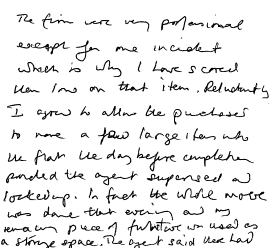 The firm were very professional
except for one incident
which is why I have scored
them low on that item. Reluctantly
I agreed to allow the purchaser
to move a few large items into
the flat the day before completion
provided the agent supervised and
locked up. In fact the whole move
was done that evening and my
remaining piece of furniture was used as
a storage space. The agent said she had